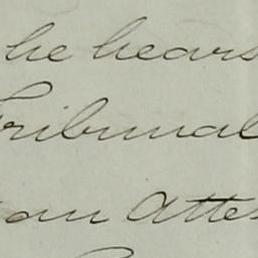 he hears
Tribunal
an Atte